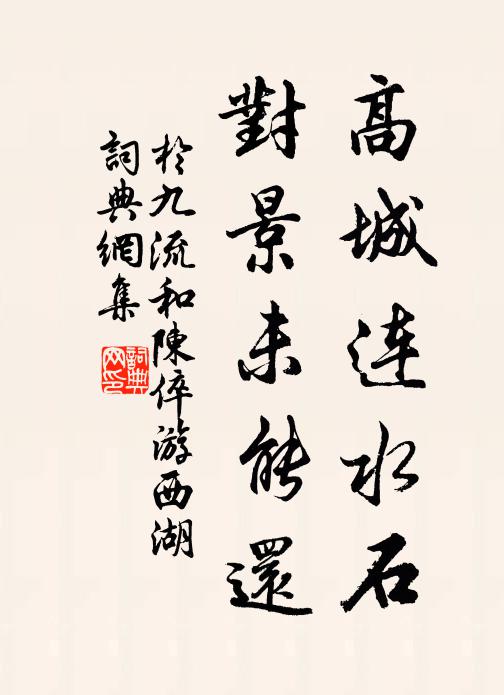 高城连水石
對景未能還
於九流和陳倅游西湖
詞典網集
詞典網印